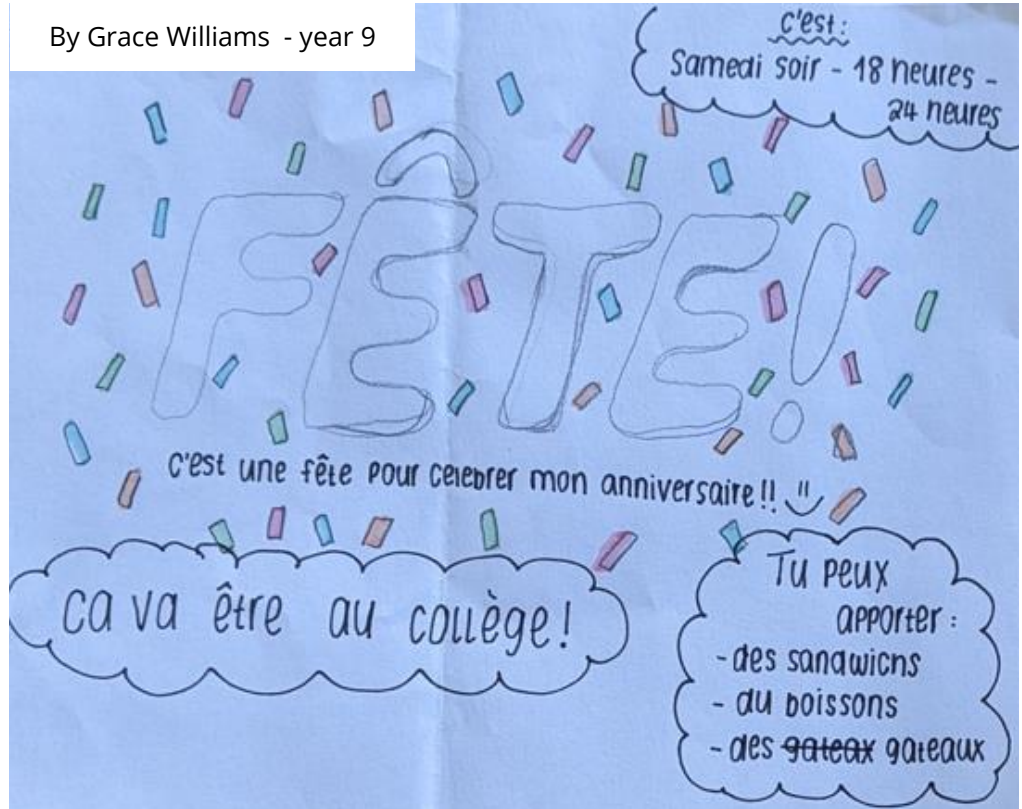 By Grace Williams - year 9
c'est:
Samedi soir - 18 heures -
24 heures
FÊTE!
c'est une fête pour celebrer mon anniversaire!!
ca va être au collège!
Tu peux
apporter:
- des sandwichs
- du boissons
- des gateax gateaux